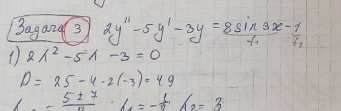 Задача 3 2y'' - 5y' - 3y = 8 sin 3x - 1
f₁ f₂
1) 2λ² - 5λ - 3 = 0
D = 25 - 4·2·(-3) = 49
5 ± 7 λ₂ = 3